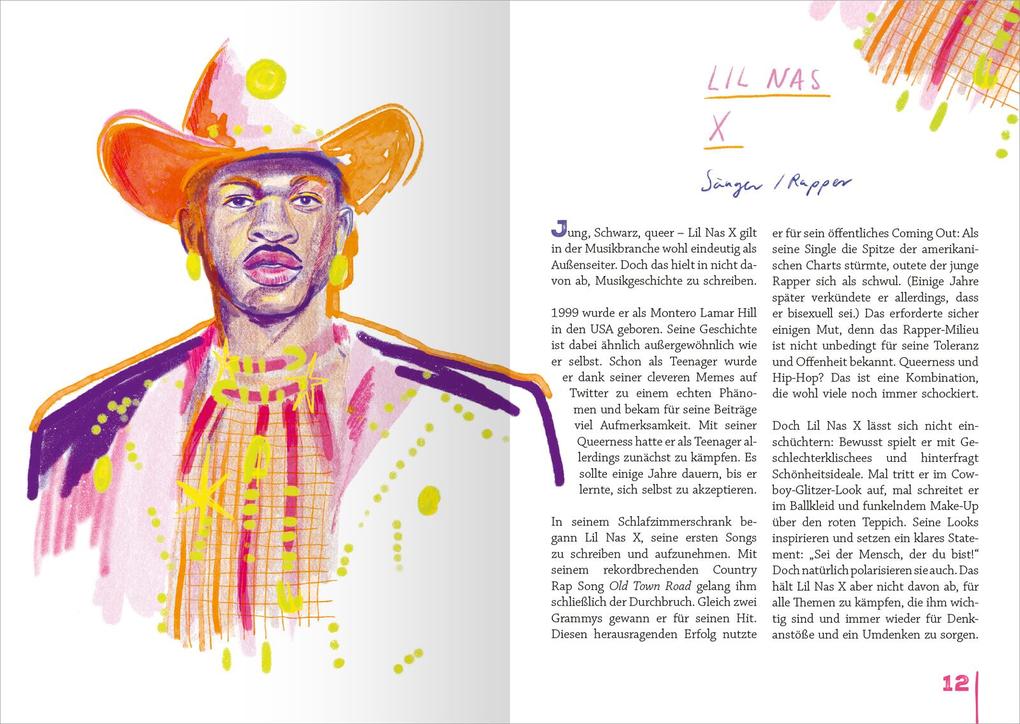 LIL NAS
X
Sänger / Rapper
Jung, Schwarz, queer – Lil Nas X gilt
in der Musikbranche wohl eindeutig als
Außenseiter. Doch das hielt in nicht da-
von ab, Musikgeschichte zu schreiben.
1999 wurde er als Montero Lamar Hill
in den USA geboren. Seine Geschichte
ist dabei ähnlich außergewöhnlich wie
er selbst. Schon als Teenager wurde
er dank seiner cleveren Memes auf
Twitter zu einem echten Phäno-
men und bekam für seine Beiträge
viel Aufmerksamkeit. Mit seiner
Queerness hatte er als Teenager al-
lerdings zunächst zu kämpfen. Es
sollte einige Jahre dauern, bis er
lernte, sich selbst zu akzeptieren.
In seinem Schlafzimmerschrank be-
gann Lil Nas X, seine ersten Songs
zu schreiben und aufzunehmen. Mit
seinem rekordbrechenden Country
Rap Song Old Town Road gelang ihm
schließlich der Durchbruch. Gleich zwei
Grammys gewann er für seinen Hit.
Diesen herausragenden Erfolg nutzte
er für sein öffentliches Coming Out: Als
seine Single die Spitze der amerikani-
schen Charts stürmte, outete der junge
Rapper sich als schwul. (Einige Jahre
später verkündete er allerdings, dass
er bisexuell sei.) Das erforderte sicher
einigen Mut, denn das Rapper-Milieu
ist nicht unbedingt für seine Toleranz
und Offenheit bekannt. Queerness und
Hip-Hop? Das ist eine Kombination,
die wohl viele noch immer schockiert.
Doch Lil Nas X lässt sich nicht ein-
schüchtern: Bewusst spielt er mit Ge-
schlechterklischees und hinterfragt
Schönheitsideale. Mal tritt er im Cow-
boy-Glitzer-Look auf, mal schreitet er
im Ballkleid und funkelndem Make-Up
über den roten Teppich. Seine Looks
inspirieren und setzen ein klares State-
ment: „Sei der Mensch, der du bist!“
Doch natürlich polarisieren sie auch. Das
hält Lil Nas X aber nicht davon ab, für
alle Themen zu kämpfen, die ihm wich-
tig sind und immer wieder für Denk-
anstöße und ein Umdenken zu sorgen.
12